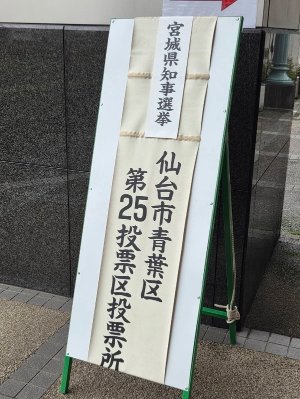 宮城県知事選挙
仙台市青葉区
第25投票区投票所